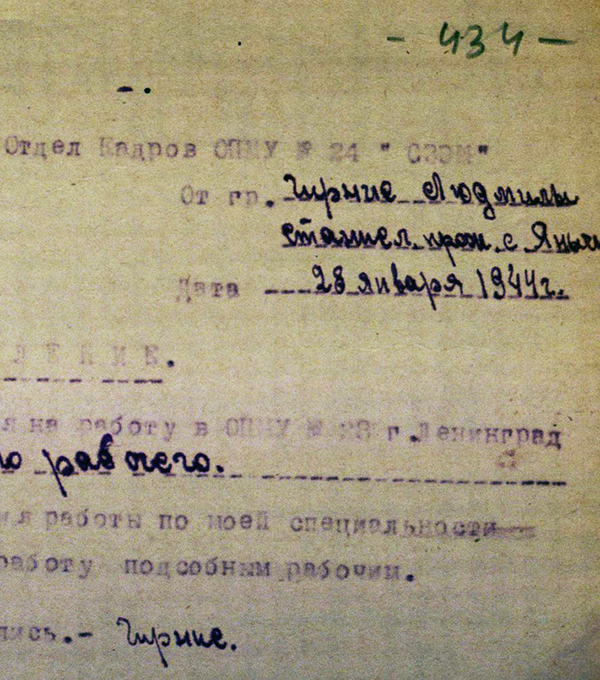 - 434 -
Отдел Кадров ОПМУ № 24 " СЗЭМ"
От гр. Чирние Людмилы
прож. с
Дата 28 января 1944г.
ЛЕНИЕ.
я на работу в ОПМУ № г. Ленинград
го рабочего.
ия работы по моей специальности
работу подсобным рабочим.
пись.- Чирние.